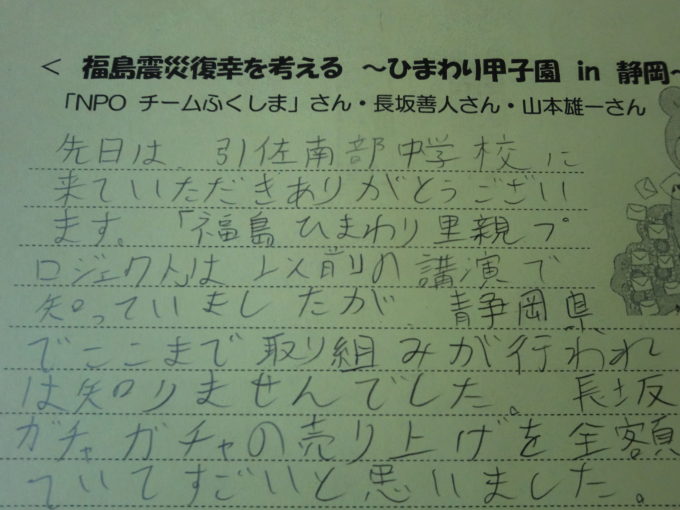 < 福島震災復幸を考える ~ひまわり甲子園 in 静岡~
「NPO チームふくしま」さん・長坂善人さん・山本雄一さん
先日は、引佐南部中学校に
来ていただきありがとうござい
ます。「福島ひまわり里親プ
ロジェクト」は以前の講演で
知っていましたが、静岡県
でここまで取り組みが行われ
は知りませんでした。長坂
ガチャガチャの売り上げを全額
ていてすごいと思いました。